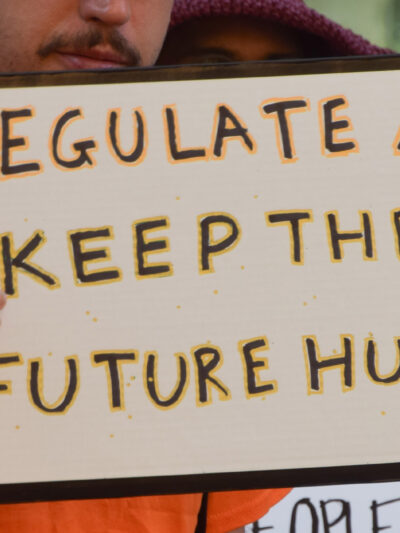 EGULATE A
KEEP THE
FUTURE HU
EOPLE